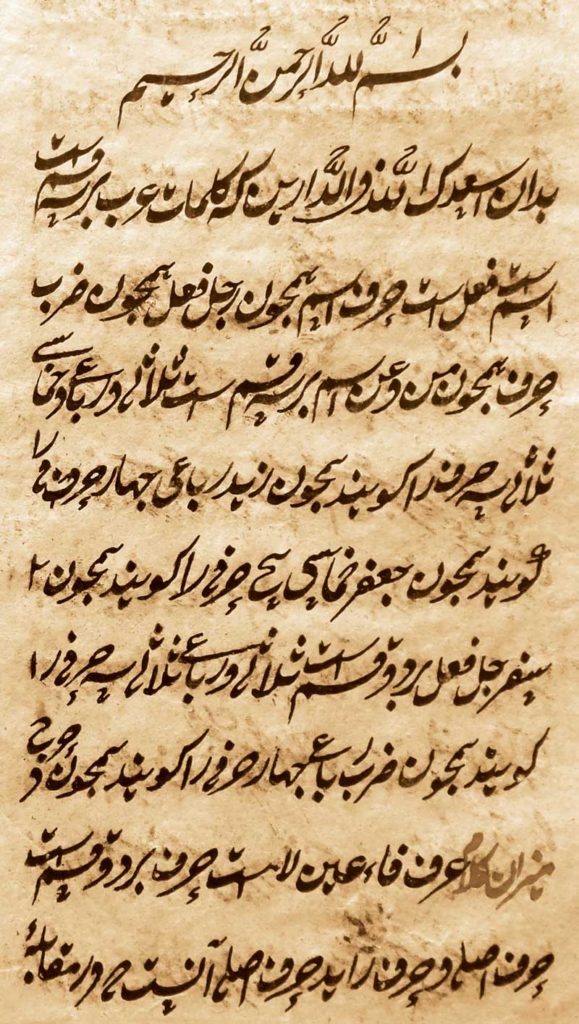 بسم الله الرحمن الرحیم
بدان اسعدک الله فی الدارین که کلمات عرب بر سه قسم است
اسم است فعل است حرف اسم همچون رجل فعل همچون ضرب
حرف همچون من و عن اسم بر سه قسم است ثلاثی و رباعی و خماسی
ثلاثی سه حرف را کویند همچون زید رباعی چهار حرفی را
کویند همچون جعفر خماسی پنج حرفی را کویند همچون
سفرجل فعل بر دو قسم است ثلاثی و رباعی ثلاثی سه حرفی را
کویند همچون ضرب رباعی چهار حرفی را کویند همچون دحرج
میزان کلام عرف فاء عین لا است حرف بر دو قسم است
حرف اصلی و حرف زاید حرف اصلی آنست در مقابله